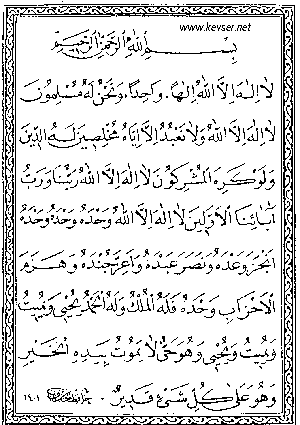 www.kevser.net
بِسْمِ اللهِ الرَّحْمٰنِ الرَّحِيمِ
لَا اِلٰهَ اِلَّا اللهُ اِلٰهًا وَاحِدًا وَنَحْنُ لَهُ مُسْلِمُونَ
لَا اِلٰهَ اِلَّا اللهُ وَلَا نَعْبُدُ اِلَّا اِيَّاهُ مُخْلِصِينَ لَهُ الدِّينَ
وَلَوْ كَرِهَ الْمُشْرِكُونَ لَا اِلٰهَ اِلَّا اللهُ رَبُّنَا وَرَبُّ
اٰبَائِنَا الْاَوَّلِينَ لَا اِلٰهَ اِلَّا اللهُ وَحْدَهُ وَحْدَهُ وَحْدَهُ
اَنْجَزَ وَعْدَهُ وَنَصَرَ عَبْدَهُ وَاَعَزَّ جُنْدَهُ وَهَزَمَ
الْاَحْزَابَ وَحْدَهُ فَلَهُ الْمُلْكُ وَلَهُ الْحَمْدُ يُحْيِي وَيُمِيتُ
وَيُمِيتُ وَيُحْيِي وَهُوَ حَيٌّ لَا يَمُوتُ بِيَدِهِ الْخَيْرُ
وَهُوَ عَلٰى كُلِّ شَيْءٍ قَدِيرٌ ١٤٠١